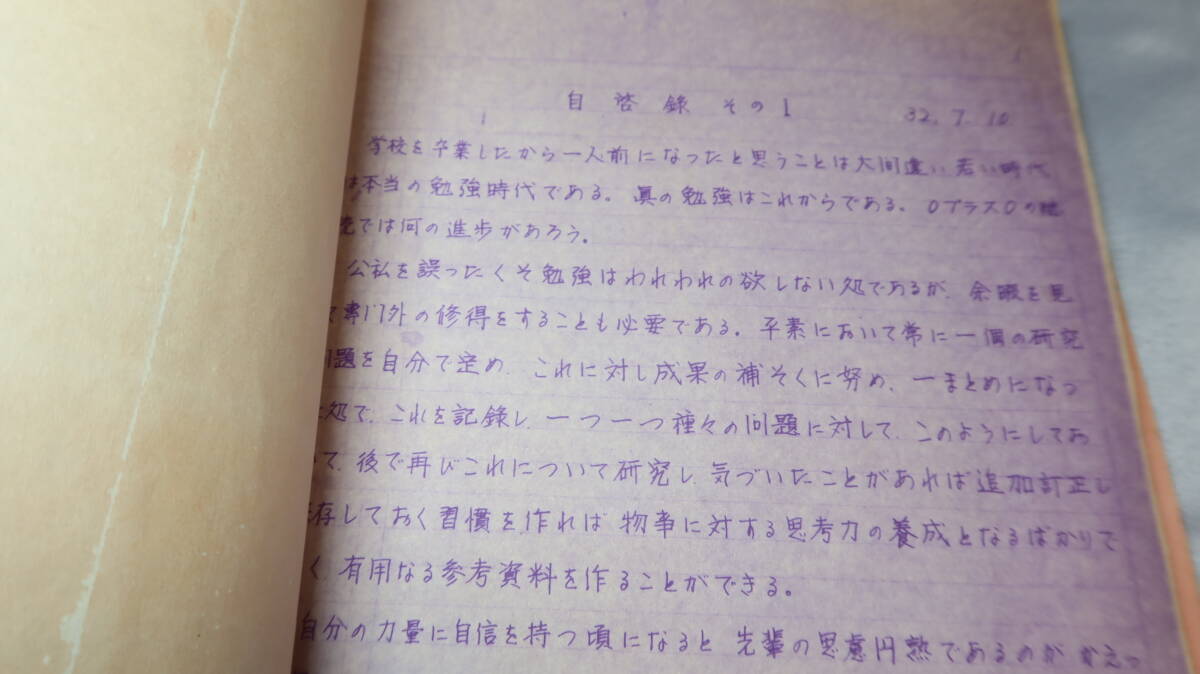 自啓録 その1 32.7.10
学校を卒業したから一人前になったと思うことは大間違い、若い時代
は本当の勉強時代である。眞の勉強はこれからである。0プラス0の継
続では何の進歩があろう。
公私を誤ったくそ勉強はわれわれの欲しない処であるが、余暇を見
て専門外の修得をすることも必要である。平素において常に一個の研究
問題を自分で定め、これに対し成果の補そくに努め、一まとめになっ
た処で、これを記録し、一つ一つ種々の問題に対して、このようにしてお
いて、後で再びこれについて研究し、気づいたことがあれば追加訂正し
保存しておく習慣を作れば物事に対する思考力の養成となるばかりで
く、有用なる参考資料を作ることができる。
自分の力量に自信を持つ頃になると先輩の思慮円熟であるのがかえっ